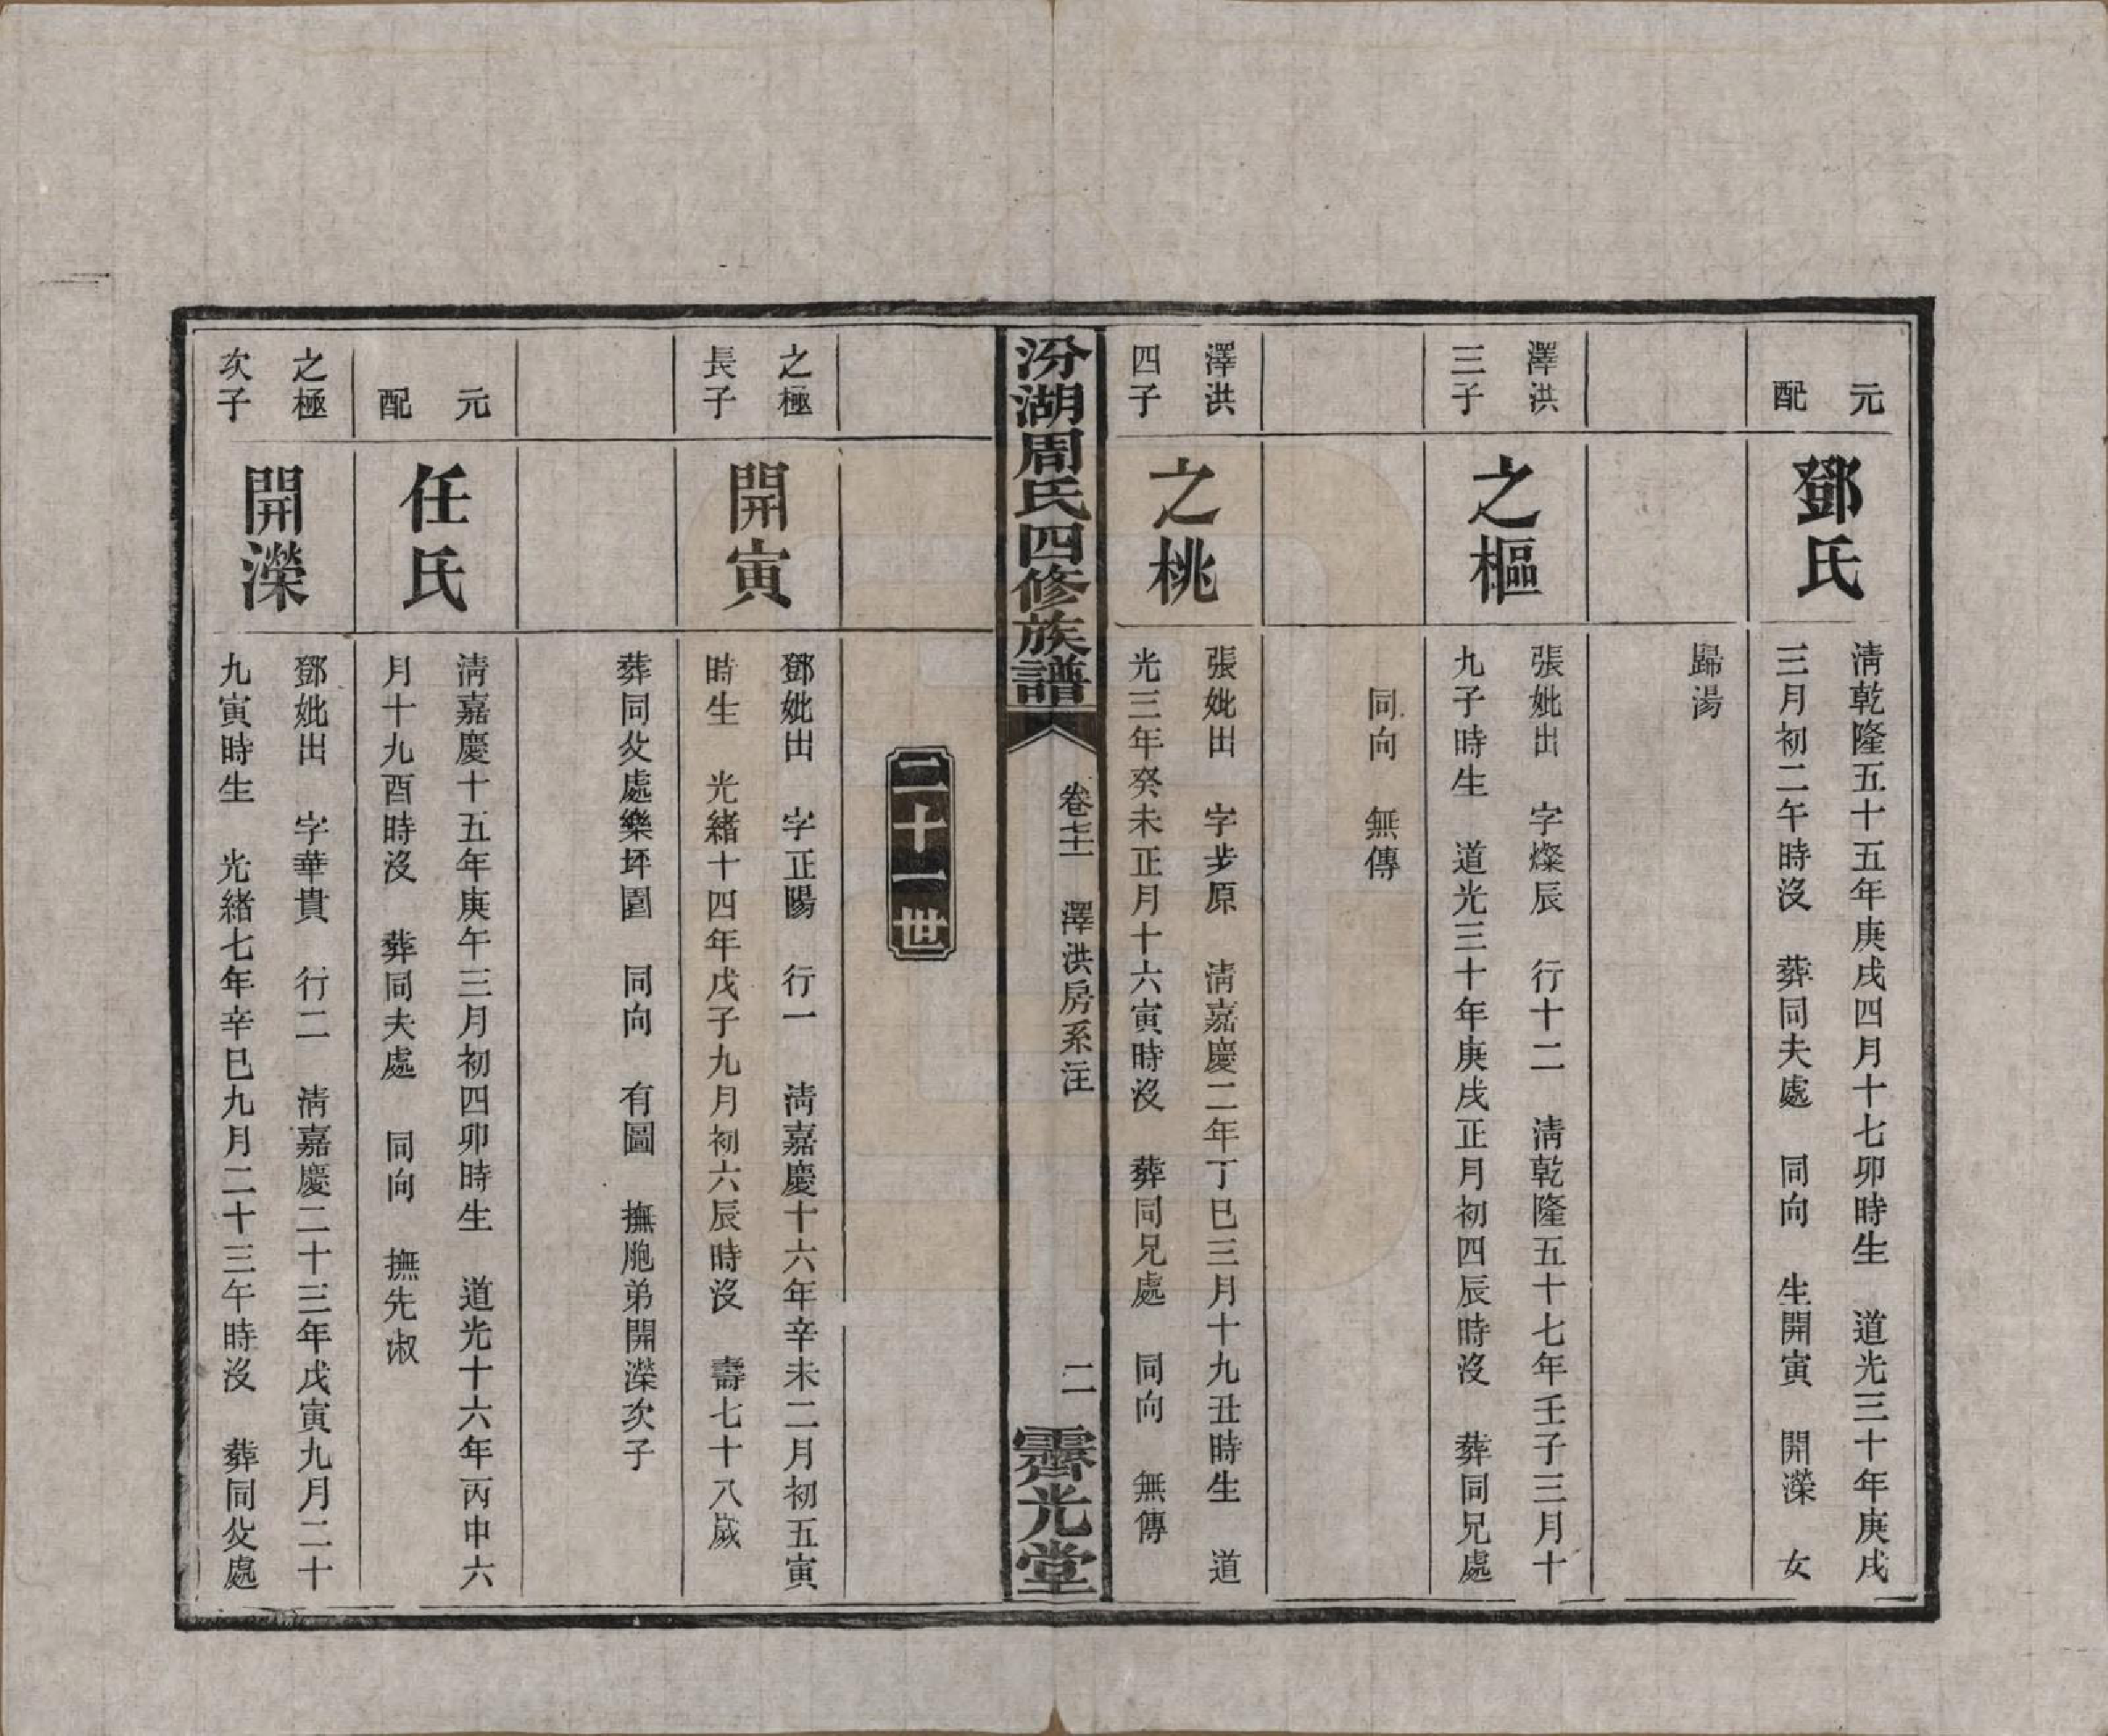 元
配
鄧氏
清乾隆五十五年庚戌四月十七卯時生　道光三十年庚戌
三月初二午時沒　葬同夫處　同向　生開寅　開濚　女
歸湯
澤洪
三子
之樞
張妣出　字燦辰　行十二　清乾隆五十七年壬子三月十
九子時生　道光三十年庚戌正月初四辰時沒　葬同兄處
同向　無傳
澤洪
四子
之桃
張妣出　字步原　清嘉慶二年丁巳三月十九丑時生　道
光三年癸未正月十六寅時沒　葬同兄處　同向　無傳
汾湖周氏四修族譜
卷十二　澤洪房系注
二
霽光堂
二十一世
之極
長子
開寅
鄧妣出　字正陽　行一　清嘉慶十六年辛未二月初五寅
時生　光緒十四年戊子九月初六辰時沒　壽七十八歲
葬同父處樂坪園　同向　有圖　撫胞弟開濚次子
元
配
任氏
清嘉慶十五年庚午三月初四卯時生　道光十六年丙申六
月十九酉時沒　葬同夫處　同向　撫先淑
之極
次子
開濚
鄧妣出　字華貴　行二　清嘉慶二十三年戊寅九月二十
九寅時生　光緒七年辛巳九月二十三午時沒　葬同父處